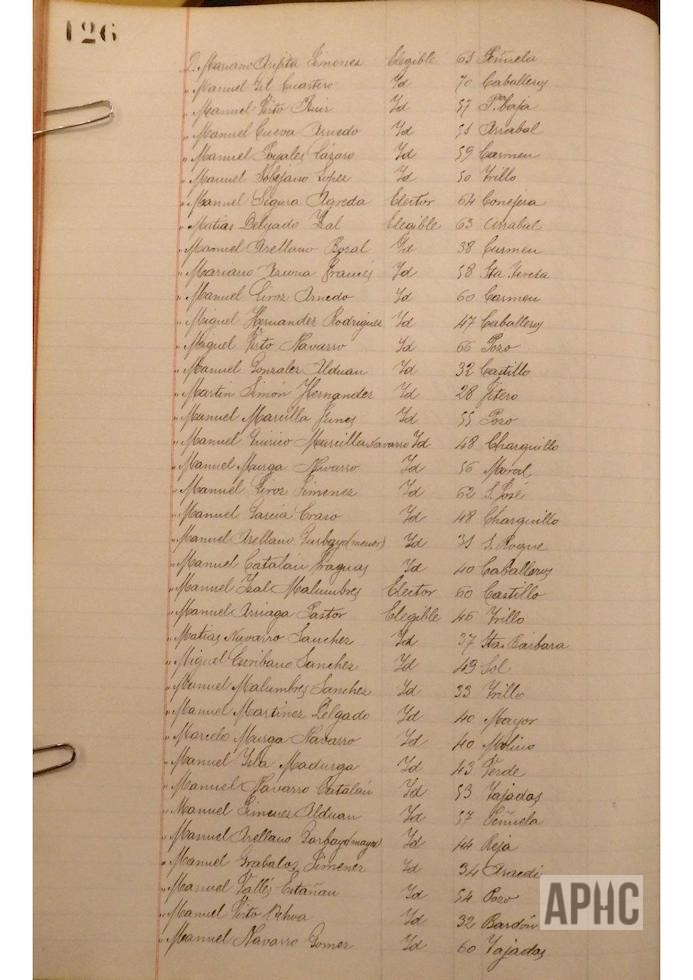 126
D. Mariano Arpita Jimenez Elegible 63 Peñuela
" Manuel Gil Cuartero Id 70 Caballeros
" Manuel Pisto Ruiz Id 57 Pta baja
" Manuel Cueva Arnedo Id 51 Arrabal
" Manuel Royales Lázaro Id 59 Carmen
" Manuel Sobejano Lopez Id 50 Trillo
" Manuel Segura Agreda Elector 64 Conejera
" Matias Delgado Isal Elegible 63 Arrabal
" Manuel Arellano Id 38 Carmen
" Mariano Francés Id 58 Sta Teresa
" Manuel Giroz Arnedo Id 60 Carmen
" Miguel Hernandez Rodriguez Id 47 Caballeros
" Miguel Pisto Navarro Id 66 Pozo
" Manuel Gonzalez Alduan Id 32 Castillo
" Martin Simón Hernandez Id 28 Fitero
" Manuel Marcilla Id 55 Pozo
" Manuel Marcilla Navarro Id 48 Charquillo
" Manuel Murga Navarro Id 56 Moral
" Manuel Giroz Jimenez Id 62 S. José
" Manuel Garcia Craso Id 48 Charquillo
" Manuel Arellano Garbayo (menor) Id 31 S. Roque
" Manuel Catalán Fraguas Id 40 Caballeros
" Manuel Isal Malumbres Elector 60 Castillo
" Manuel Arriaga Pastor Elegible 46 Trillo
" Matias Navarro Sanchez Id 37 Sta Bárbara
" Miguel Escribano Sanchez Id 49 Sol
" Manuel Malumbres Sanchez Id 33 Trillo
" Manuel Martinez Delgado Id 40 Mayor
" Marcelo Murga Navarro Id 40 Molino
" Manuel Isla Madurga Id 43 Verde
" Manuel Navarro Catalán Id 53 Tajadas
" Manuel Jimenez Alduan Id 57 Peñuela
" Manuel Arellano Garbayo (mayor) Id 44 Reja
" Manuel Grabalos Jimenez Id 34
" Manuel Vallés Estañan Id 54 Pozo
" Manuel Pisto Ochoa Id 32 Bardón
" Manuel Navarro Gomez Id 60 Tajadas
APHC